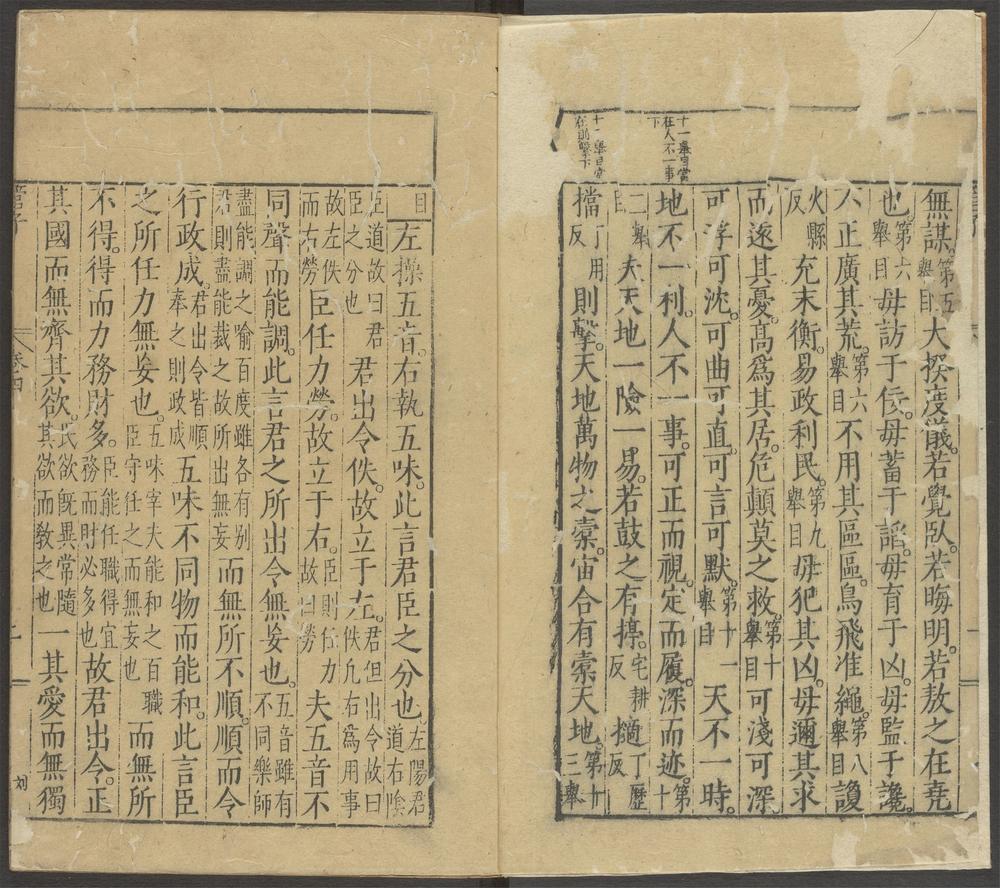 十一舉目當
在人不一事
下
十一舉目當
在則擊下
無謀。第五舉目大揆度儀。若覺臥。若晦明。若敖之在堯
也。第六舉目毋訪于佞。毋蓄于諂。毋育于凶。毋監于讒。
不正廣其荒。第六舉目不用其區區。鳥飛准繩。第八舉目讂
火縣反充末衡。易政利民。第九舉目毋犯其凶。毋邇其求
而遠其憂。高爲其居。危顛莫之救。第十舉目可淺可深
可浮可沈。可曲可直。可言可默。第十一舉目天不一時。
地不一利。人不一事。可正而視。定而履。深而迹。第十
二舉目夫天地一險一易。若鼓之有桴。宅耕反擿丁歷反
擋丁用反則擊。天地萬物之橐。宙合有橐天地。第十三舉
目左操五音。右執五味。此言君臣之分也。左陽君道右陰
臣道故曰君臣之分也君出令佚。故立于左。君但出令故曰佚凡右爲用事
故左佚而右勞臣任力勞。故立于右。臣則任力故曰勞夫五音不
同聲而能調。此言君之所出令無妄也。五音雖有不同樂師
盡能調之喻百度雖各有别君則盡能裁之故所出無妄而無所不順。順而令
行政成。君出令皆順奉之則政成五味不同物而能和。此言臣
之所任力無妄也。五味宰夫能和之百職臣守任之而無妄也而無所
不得。得而力務財多。臣能任職得宜務而財必多也故君出令。正
其國而無齊其欲。民欲旣異常隨其欲而敎之也一其愛而無獨
管子 卷四 二 刻